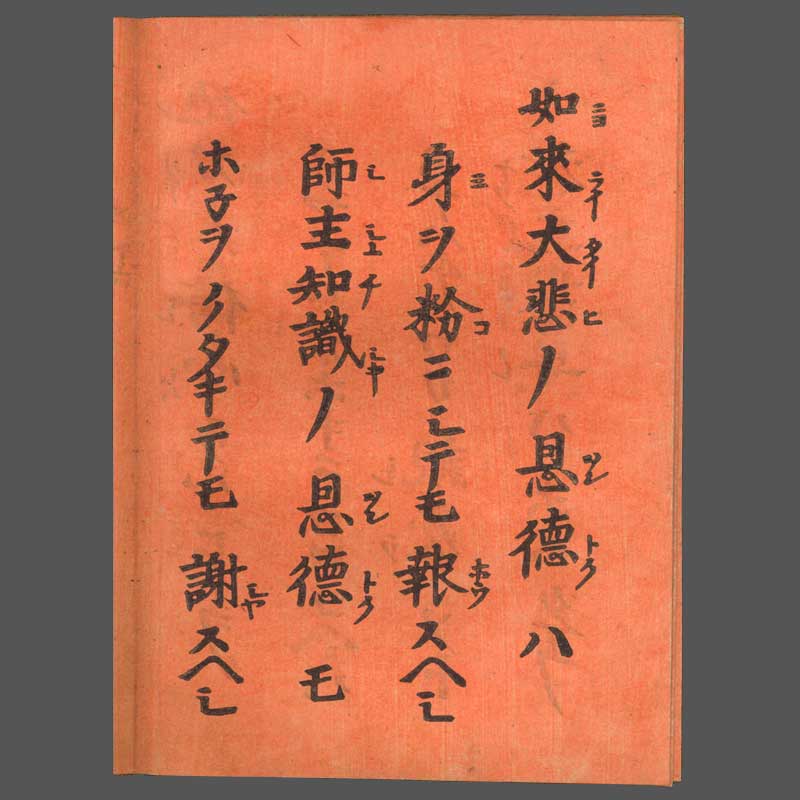 如來大悲ノ恩德ハ
身ヲ粉ニシテモ報スヘシ
師主知識ノ恩德モ
ホ子ヲクタキテモ謝スヘシ